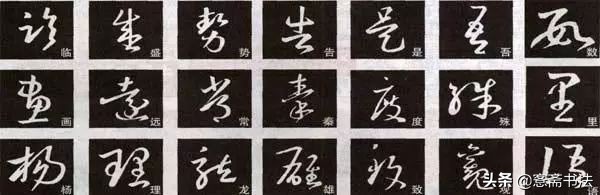 临 盛 势 告 是 吾 数
画 远 常 秦 度 殊 里
杨 理 龙 雄 致 观 语
头条 @憲斋书法